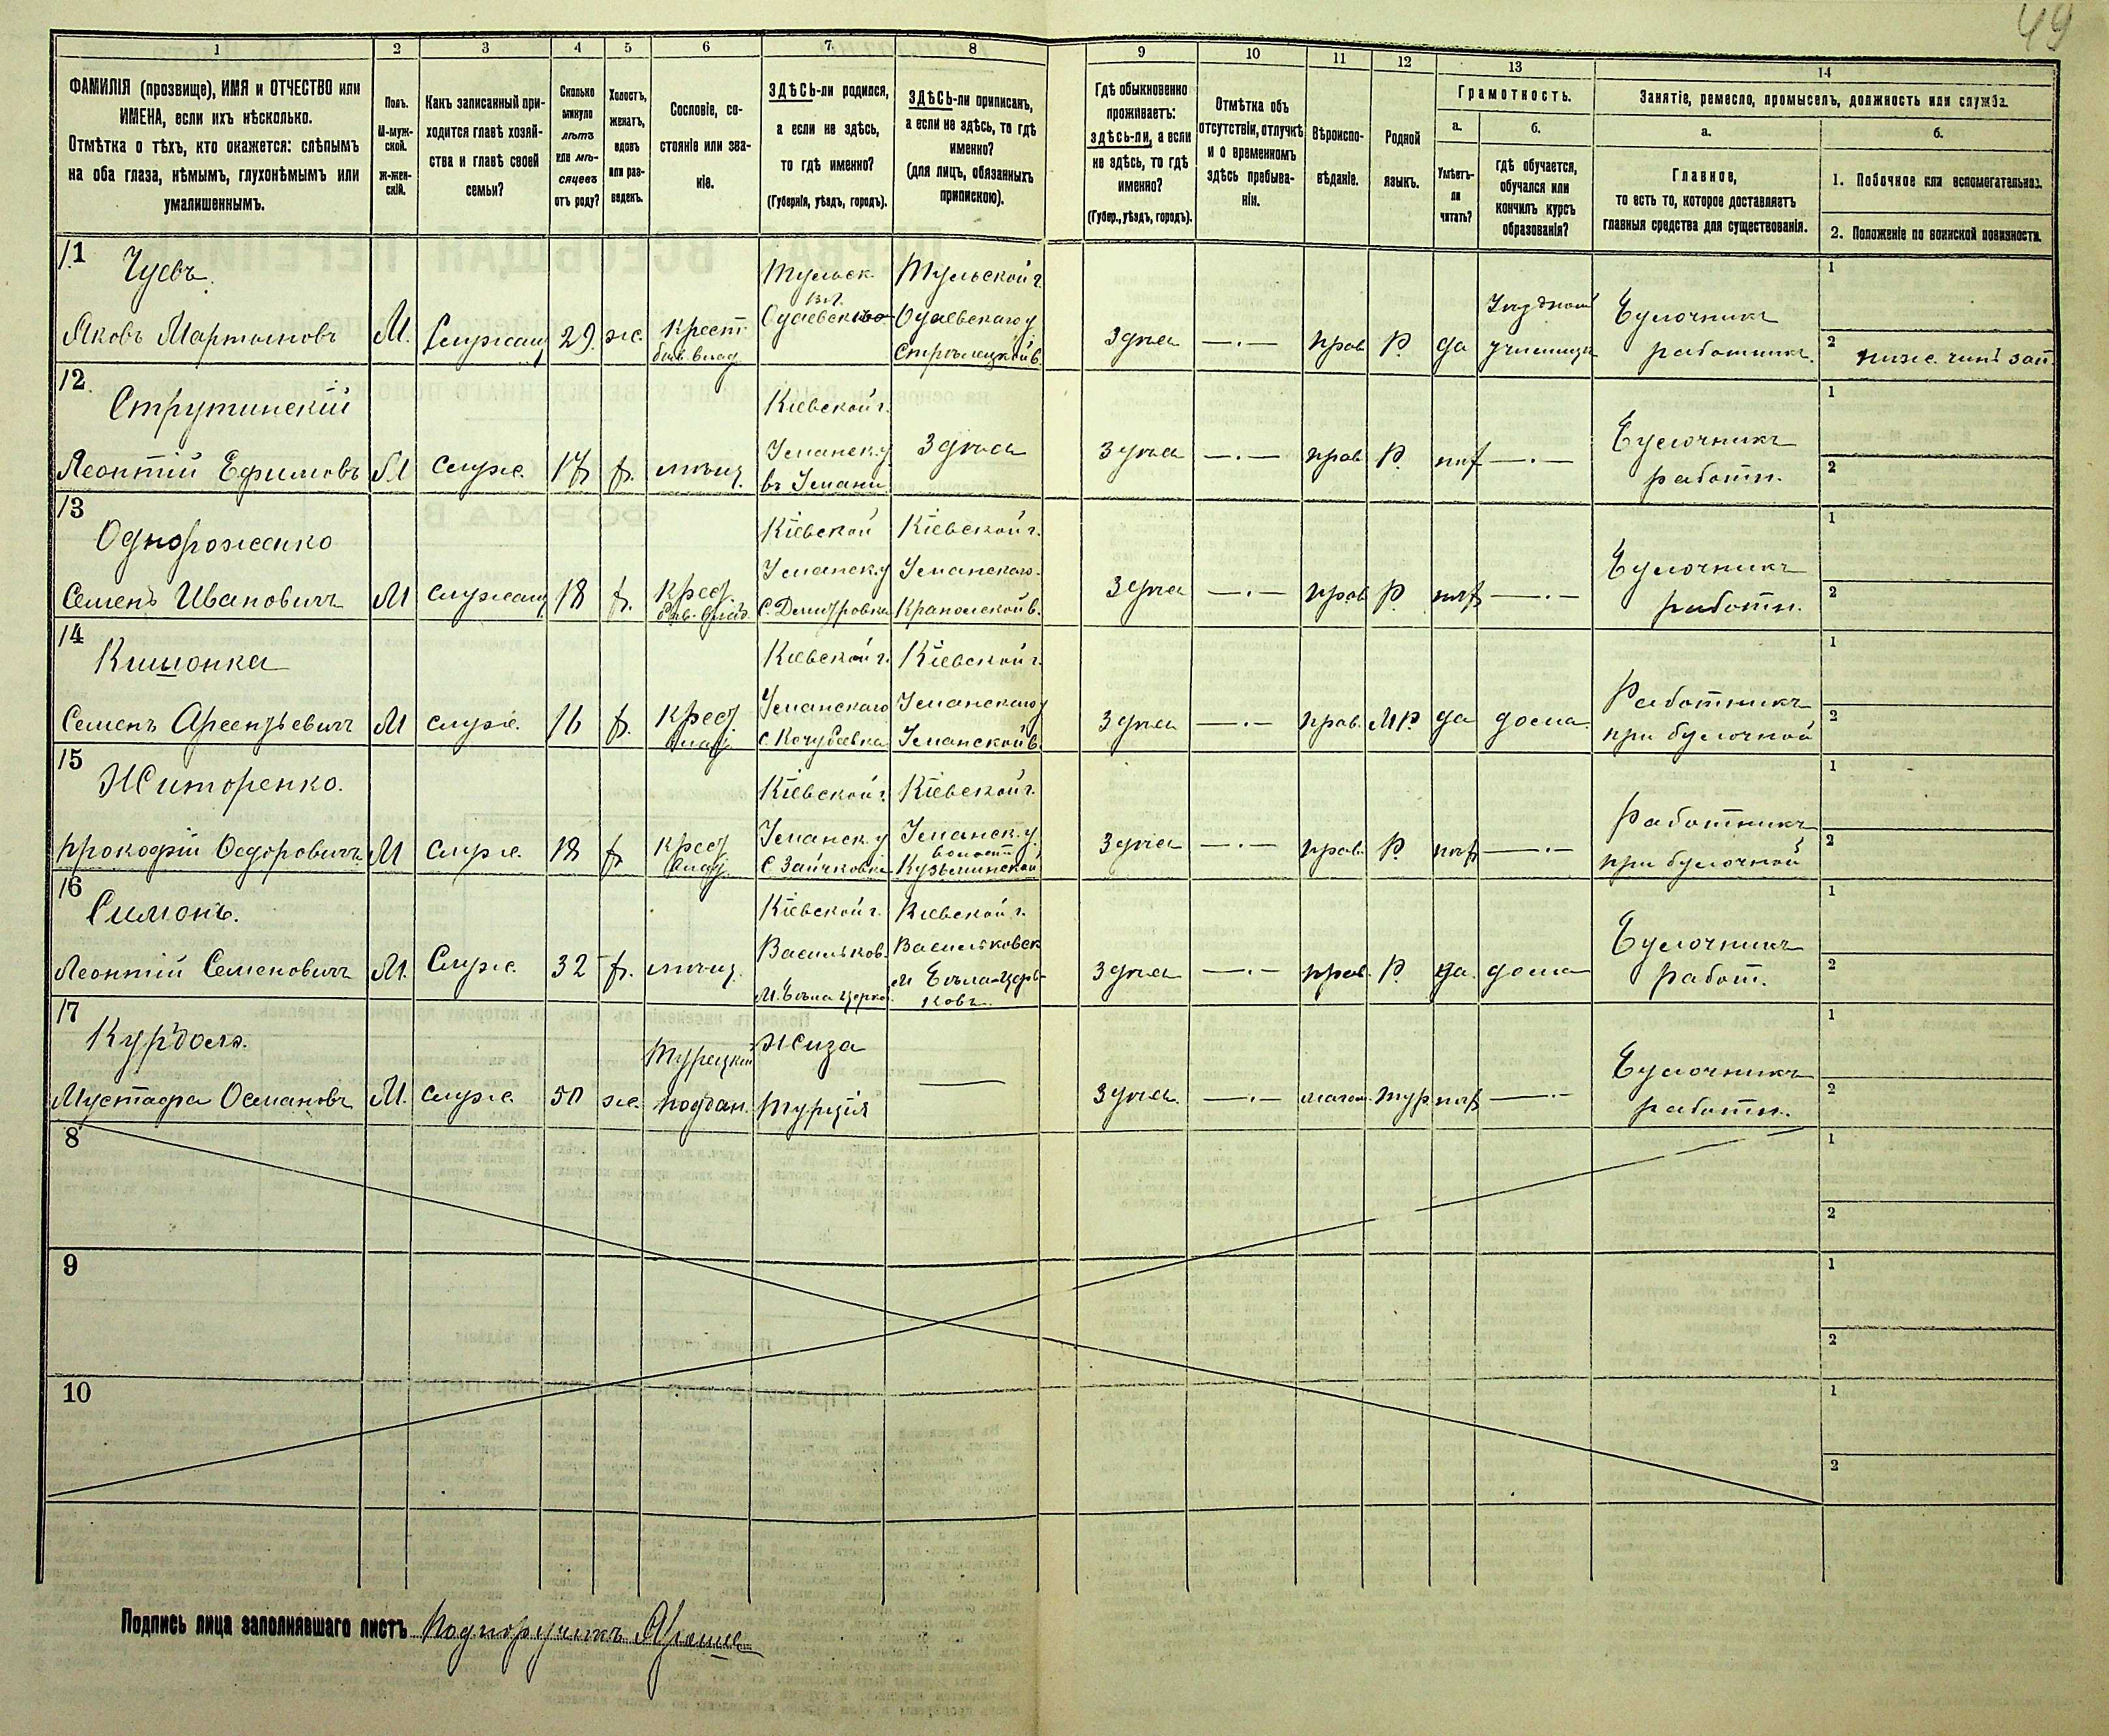 49
1 2 3 4 5 6 7 8 9 10 11 12 13 14
ФАМИЛІЯ (прозвище), ИМЯ и ОТЧЕСТВО или
ИМЕНА, если ихъ нѣсколько.
Отмѣтка о тѣхъ, кто окажется: слѣпымъ
на оба глаза, нѣмымъ, глухонѣмымъ или
умалишеннымъ.
Полъ.
М-муж-
ской.
Ж-жен-
скій.
Какъ записанный при-
ходится главѣ хозяй-
ства и главѣ своей
семьи?
Сколько
минуло
лѣтъ
или мѣ-
сяцевъ
отъ роду?
Холостъ,
женатъ,
вдовъ
или раз-
веденъ.
Сословіе, со-
стояніе или зва-
ніе.
ЗДѢСЬ-ли родился,
а если не здѣсь,
то гдѣ именно?
(Губернія, уѣздъ, городъ).
ЗДѢСЬ-ли приписанъ,
а если не здѣсь, то гдѣ
именно?
(для лицъ, обязанныхъ
припискою).
Гдѣ обыкновенно
проживаетъ:
здѣсь-ли, а если
не здѣсь, то гдѣ
именно?
(Губер., уѣздъ, городъ).
Отмѣтка объ
отсутствіи, отлучкѣ
и о временномъ
здѣсь пребыва-
ніи.
Вѣроиспо-
вѣданіе.
Родной
языкъ.
Грамотность.
а.
Умѣетъ-
ли
читать?
б.
гдѣ обучается,
обучался или
кончилъ курсъ
образованія?
Занятіе, ремесло, промыселъ, должность или служба.
а.
Главное,
то есть то, которое доставляетъ
главныя средства для существованія.
б.
1. Побочное или вспомогательное.
2. Положеніе по воинской повинности.
11
Чуевъ.
Яковъ Мартыновъ
М.
Служащ
29.
ж.
Крест.
быв. влад.
Тульск.
Одоевск
Тульской г.
Одоевскаго у
Стрѣлецкой в.
Здѣсь
—·—
прав
Р.
да
училищѣ
Булочникъ
работникъ.
1
2 ниж. чинъ зап.
12
Струтинскій
Леонтій Ефимовъ
М
служ.
17
х.
мѣщ.
Кіевской г.
Уманск. у
въ Умани
Здѣсь
Здѣсь
—·—
прав
Р.
нѣт
—·—
Булочникъ
работн.
1
2
13
Однороженко
Семенъ Ивановичъ
М
служащ
18
х.
Крест.
быв. влад.
Кіевской
Уманск. у
с. Дмитровка
Кіевской г.
Уманскаго
в.
Здѣсь
—·—
прав
Р.
нѣт
—·—
Булочникъ
работн.
1
2
14
Кишонка
Семенъ Арсентьевичъ
М
служ.
16
х.
Крест
влад.
Кіевской г.
Уманскаго
с. Кочубеевка
Кіевской г.
Уманскаго у
Уманской в.
Здѣсь
—·—
прав.
МР.
да
дома
Работникъ
при булочной
1
2
15
Житоренко.
Прокофій Федоровичъ
М
служ.
18
х
Крест
влад.
Кіевской г.
Уманск. у
с. Зайчковка
Кіевской г.
Уманск. у.
волости
Кузьминской
Здѣсь
—·—
прав.
Р.
нѣт
—·—
Работникъ
при булочной
1
2
16
Симонъ.
Леонтій Семеновичъ
М.
Служ.
32
х.
мѣщ.
Кіевской г.
Васильков.
М. Бѣла Церко.
Кіевской г.
Васильковск
М Бѣла-Цер-
ковь.
Здѣсь
—·—
прав.
Р.
да.
дома
Булочникъ
работ.
1
2
17
Курдоглъ.
Мустафа Османовъ
М.
служ.
50
ж.
Турецкій
поддан.
Жиза
Турція
—
Здѣсь.
—·—
магом.
тур
нѣт
—·—
Булочникъ
работн.
1
2
8
1
2
9
1
2
10
1
2
Подпись лица заполнявшаго листъ Подпоручикъ